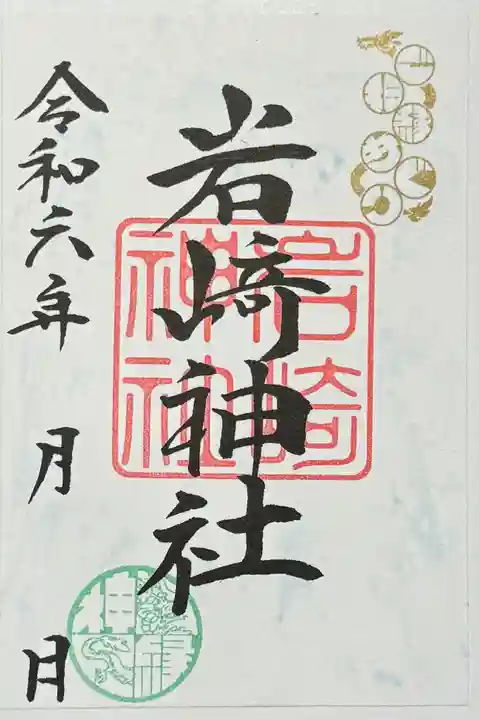 岩崎神社
岩崎神社
令和六年 月 日